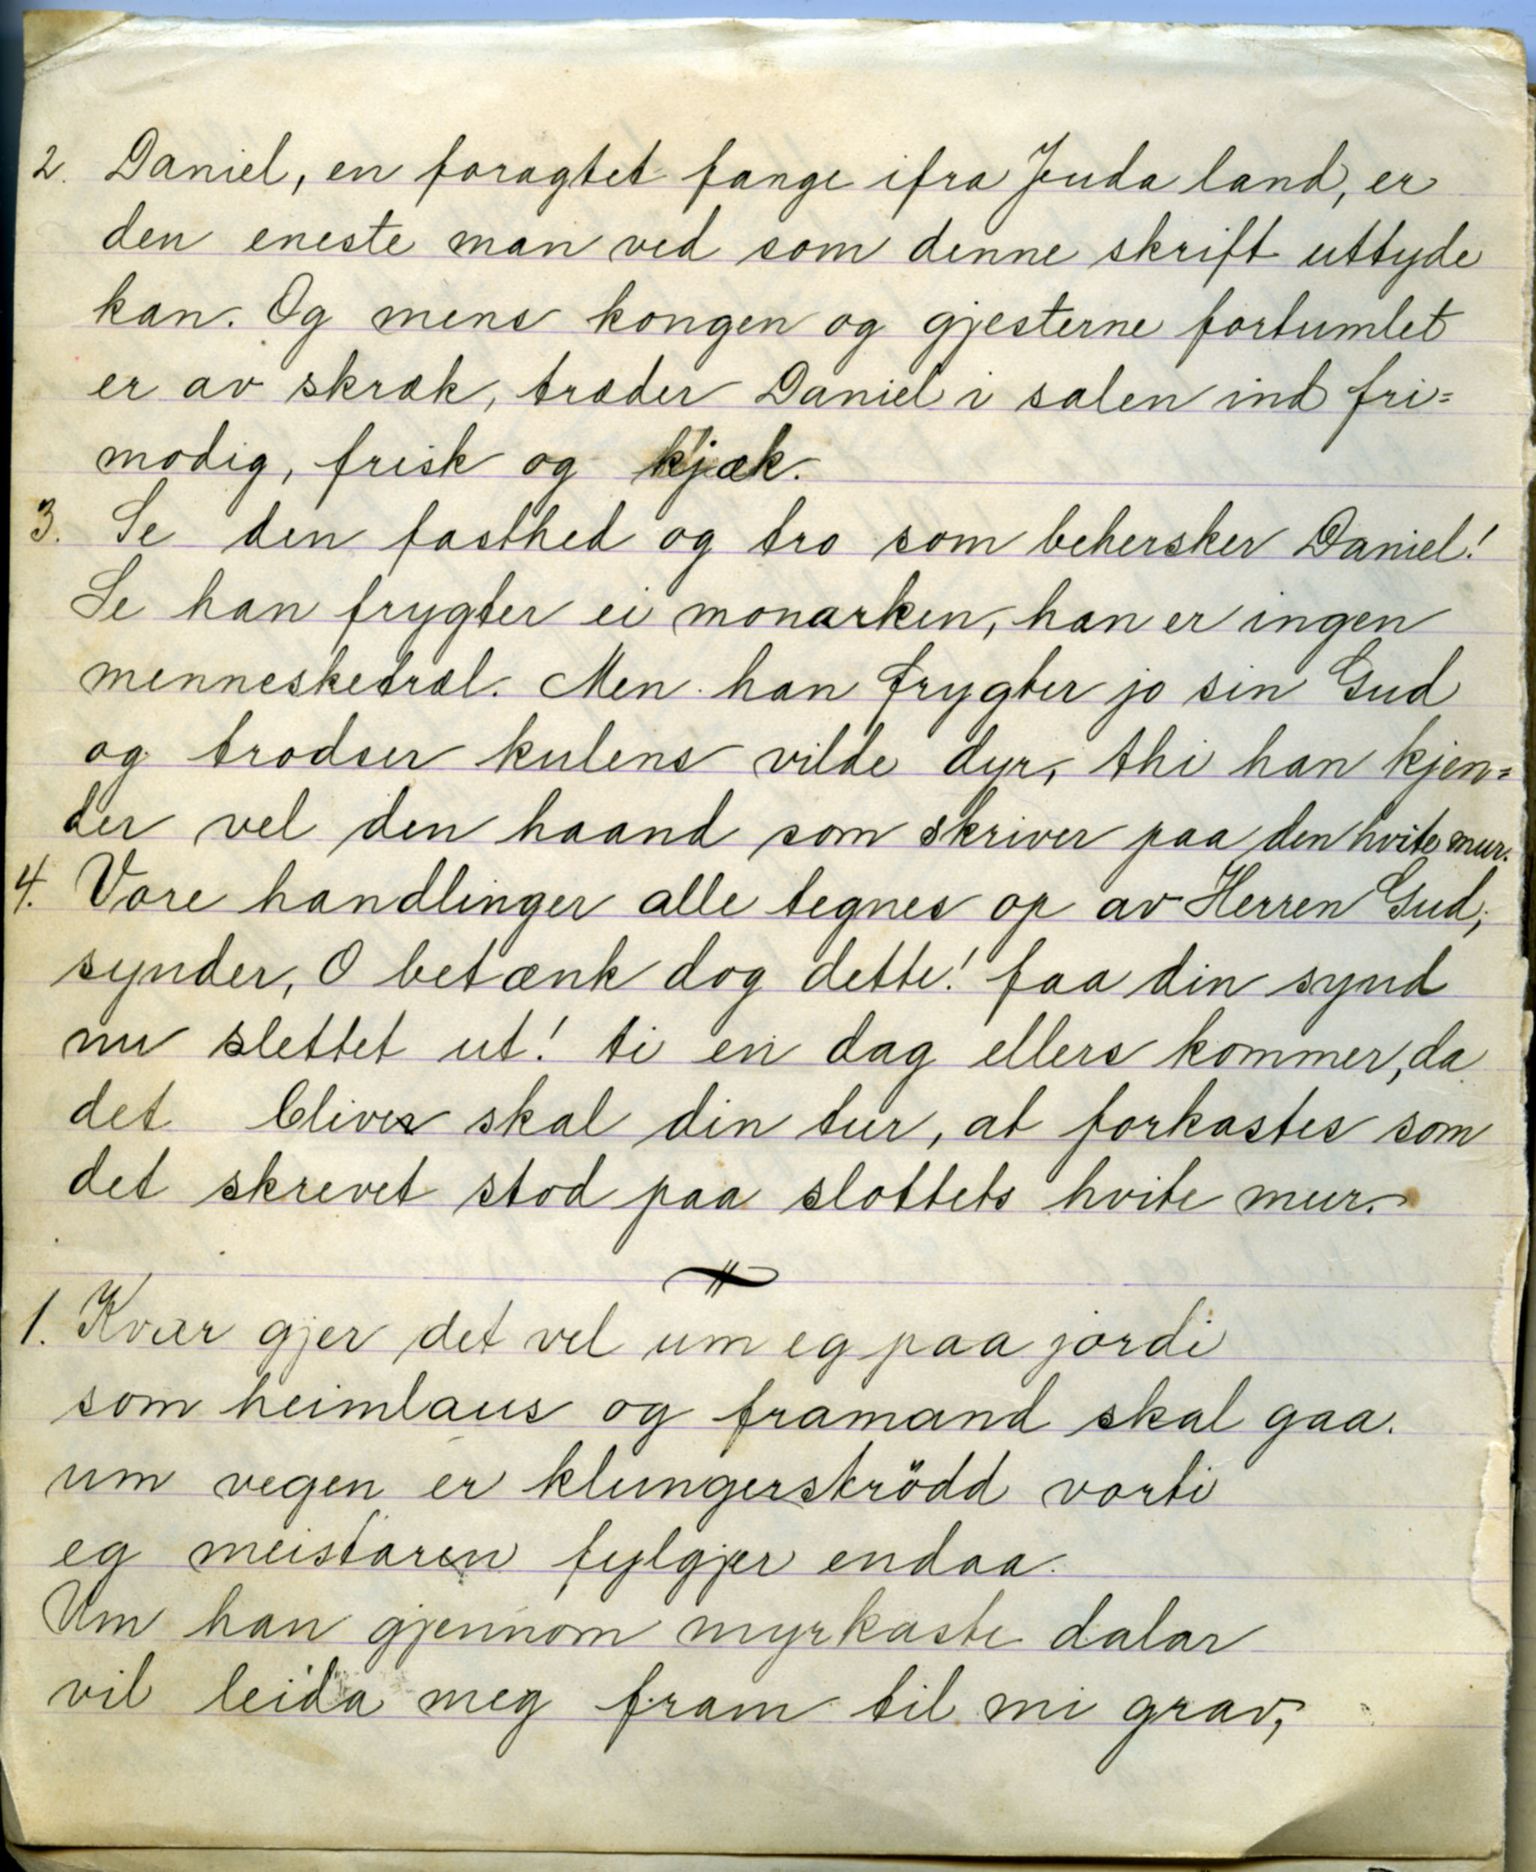 2. Daniel, en foragtet fange ifra Juda land, er
den eneste man ved som denne skrift uttyde
kan. Og mens kongen og gjesterne fortumlet
er av skræk, træder Daniel i salen ind fri=
modig, frisk og kjæk.
3. Se den fasthed og tro som behersker Daniel!
Se han frygter ei monarken, han er ingen
mennesketræl. Men han frygter jo sin Gud
og trodser kulens vilde dyr, thi han kjen=
der vel den haand som skriver paa den hvite mur.
4. Vore handlinger alle tegnes op av Herren Gud,
synder, O betænk dog dette! faa din synd
nu slettet ut! ti en dag ellers kommer, da
det bliver skal din tur, at forkastes som
det skrevet stod paa slottets hvite mur.
1. Kvær gjer det vel um eg paa jordi
som heimlaus og framand skal gaa.
um vegen er klungerströdd vorti
eg meistaren fylgjer endaa.
Um han gjennom myrkaste dalar
vil leida meg fram til mi grav,